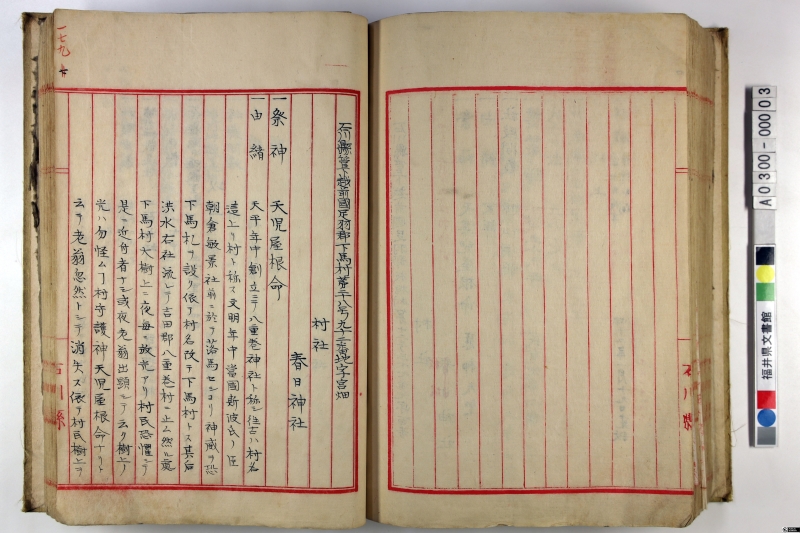 石川縣管下越前國足羽郡下馬村第二十八号九十三番地字宮畑
村社
春日神社
一祭神　天児屋根命
一由緒　天平年中創立ニテ八重巻神社ト称シ往古ハ村名
造リ村ト称ス文明年中當國斯波氏ノ臣
朝倉敏景社前ニ於テ落馬セシヨリ神威ヲ恐
下馬札ヲ設ク依テ村名改テ下馬村トス其后
洪水右社流レテ吉田郡八重巻村ニ止ム然ニ
下馬村大樹上ニ夜毎ニ放光アリ村民恐懼シテ
是ニ近付者ナシ或夜老翁出顕シテ云ク樹上ノ
光ハ勿怪ム丁村守護神天児屋根命ナリト
云テ老翁忽然トシテ消失ス依テ村民樹上ヲ
一七九
石川縣
石川縣
A0300-00003
福井県文書館